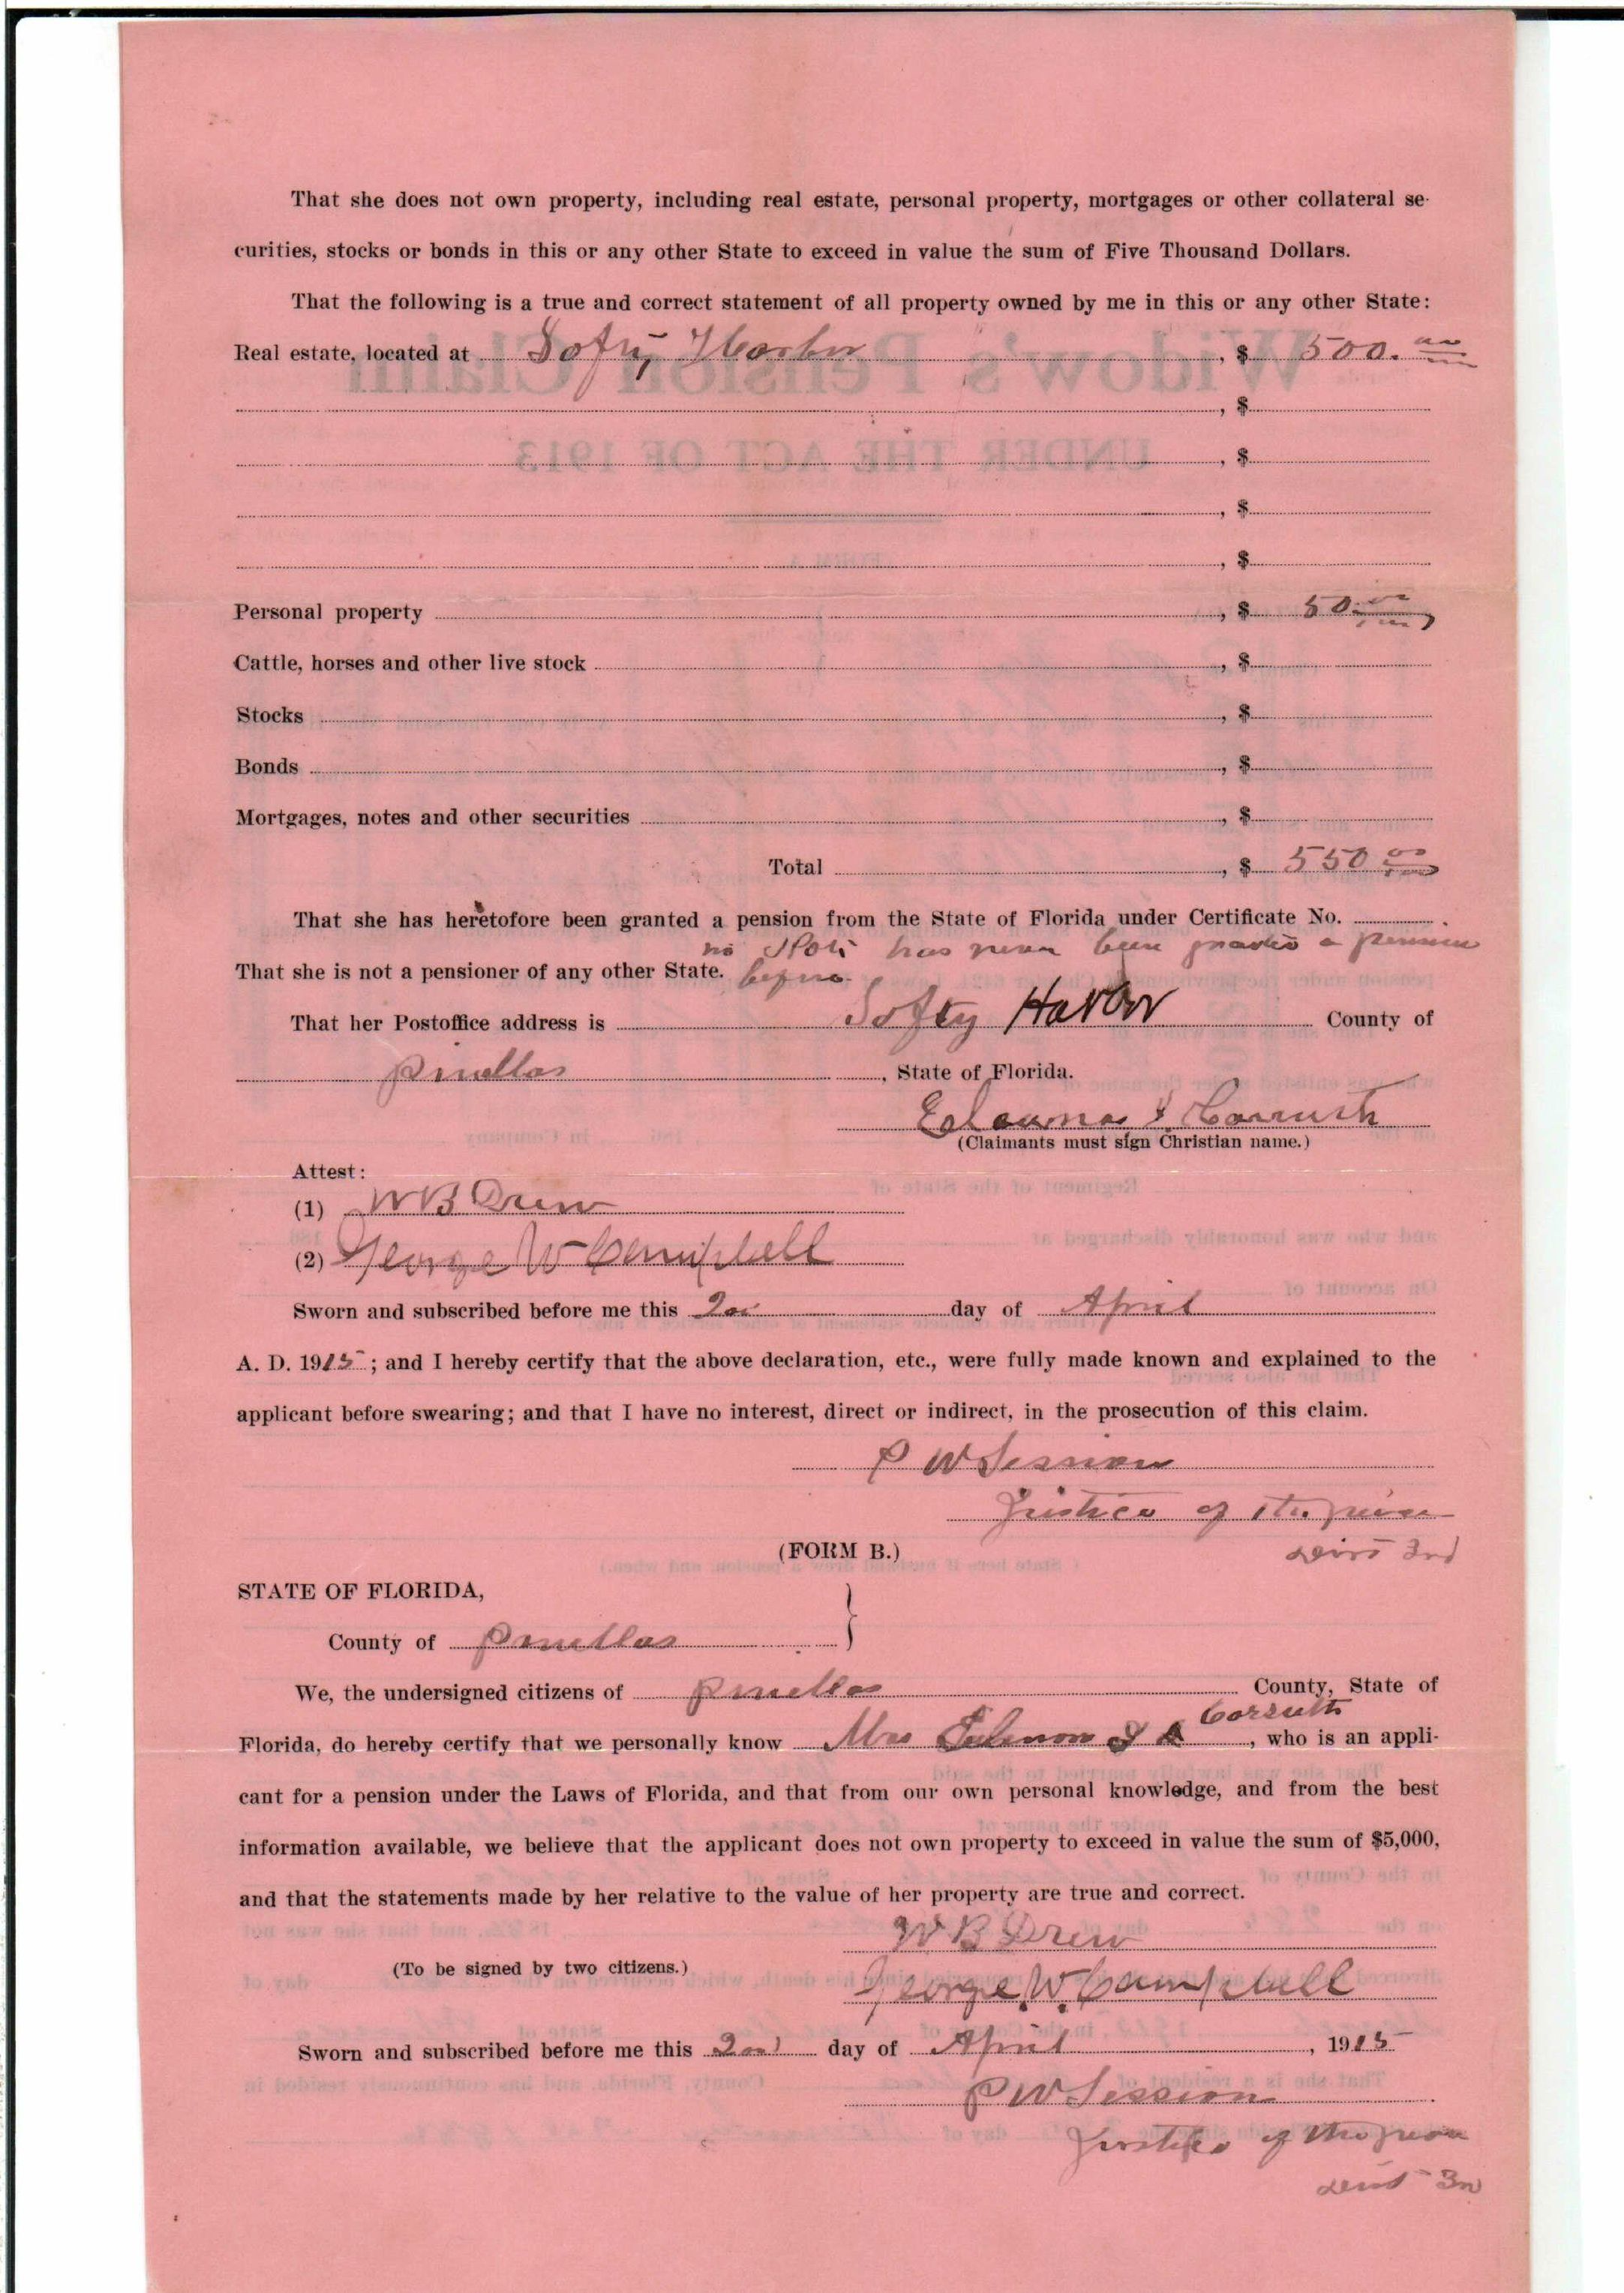 That she does not own property, including real estate, personal property, mortgages or other collateral se-
curities, stocks or bonds in this or any other State to exceed in value the sum of Five Thousand Dollars.
That the following is a true and correct statement of all property owned by me in this or any other State:
Real estate, located at Softy Harbor, $ 500.00
, $
, $
, $
, $
Personal property , $ 50.00
Cattle, horses and other live stock , $
Stocks , $
Bonds , $
Mortgages, notes and other securities , $
Total , $ 550 00
That she has heretofore been granted a pension from the State of Florida under Certificate No. .
no has never been a pension
That she is not a pensioner of any other State. before
That her Postoffice address is Softy Harbor County of
Pinellas , State of Florida.
Carruth
(Claimants must sign Christian name.)
Attest:
(1) W B Drew
(2) George W Campbell
Sworn and subscribed before me this 2nd day of April
A. D. 1915; and I hereby certify that the above declaration, etc., were fully made known and explained to the
applicant before swearing; and that I have no interest, direct or indirect, in the prosecution of this claim.
P W Session
Justice of the peace
Dist 3rd
(FORM B.)
STATE OF FLORIDA,
County of Pinellas
We, the undersigned citizens of Pinellas County, State of
Carruth
Florida, do hereby certify that we personally know Mrs , who is an appli-
cant for a pension under the Laws of Florida, and that from our own personal knowledge, and from the best
information available, we believe that the applicant does not own property to exceed in value the sum of $5,000,
and that the statements made by her relative to the value of her property are true and correct.
W B Drew
(To be signed by two citizens.)
George W. Campbell
Sworn and subscribed before me this 2nd day of April , 1915
P W Session
Justice of the peace
Dist 3rd